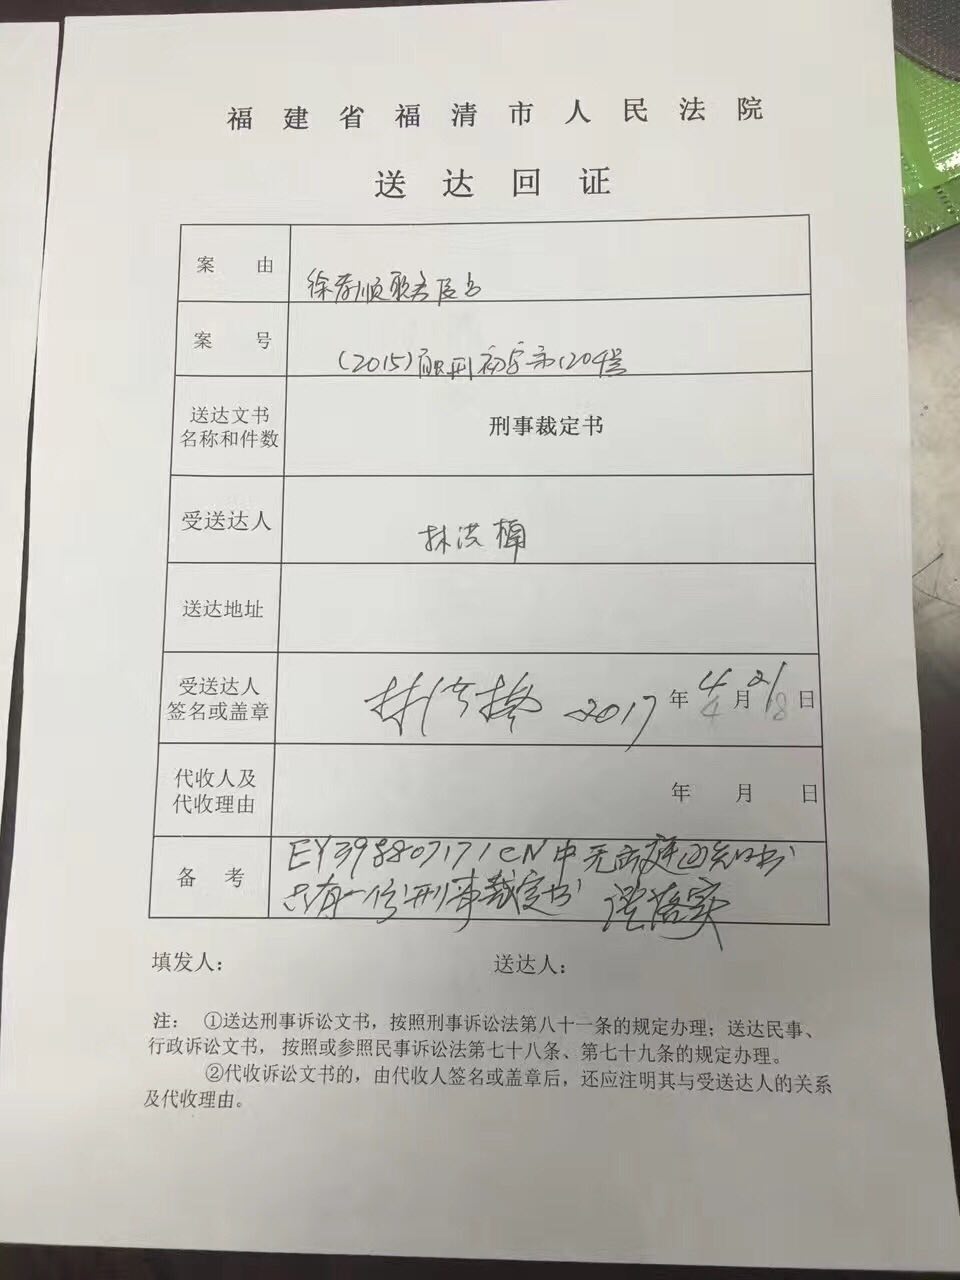 福建省福清市人民法院
送达回证
案由
徐孝顺职务侵占
案号
(2015)融刑初字第1204号
送达文书
名称和件数
刑事裁定书
受送达人
林洪楠
送达地址
受送达人
签名或盖章
林洪楠 2017年4月21日
代收人及
代收理由
年 月 日
备考
EY398807171CN中无开庭通知书
只有一份刑事裁定书 请落实
填发人: 送达人:
注: ①送达刑事诉讼文书,按照刑事诉讼法第八十一条的规定办理;送达民事、
行政诉讼文书,按照或参照民事诉讼法第七十八条、第七十九条的规定办理。
②代收诉讼文书的,由代收人签名或盖章后,还应注明其与受送达人的关系
及代收理由。